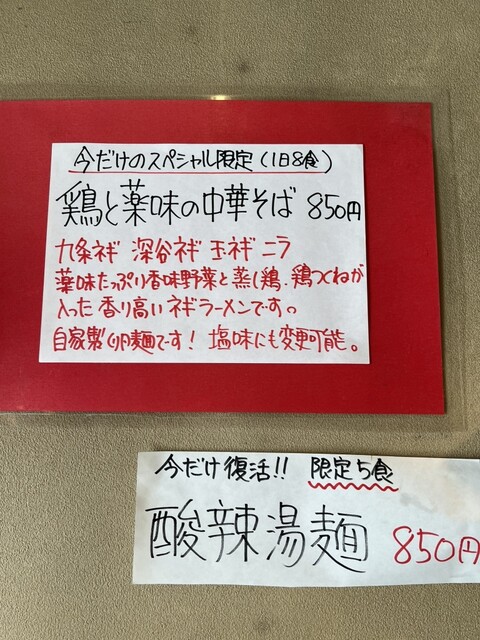 今だけのスペシャル限定(1日8食)
鶏と薬味の中華そば 850円
九条ネギ 深谷ネギ 玉ネギ ニラ
薬味たっぷり香味野菜と蒸し鶏、鶏つくねが
入った香り高いネギラーメンです。
自家製卵麺です! 塩味にも変更可能。
今だけ復活!! 限定5食
酸辣湯麺 850円